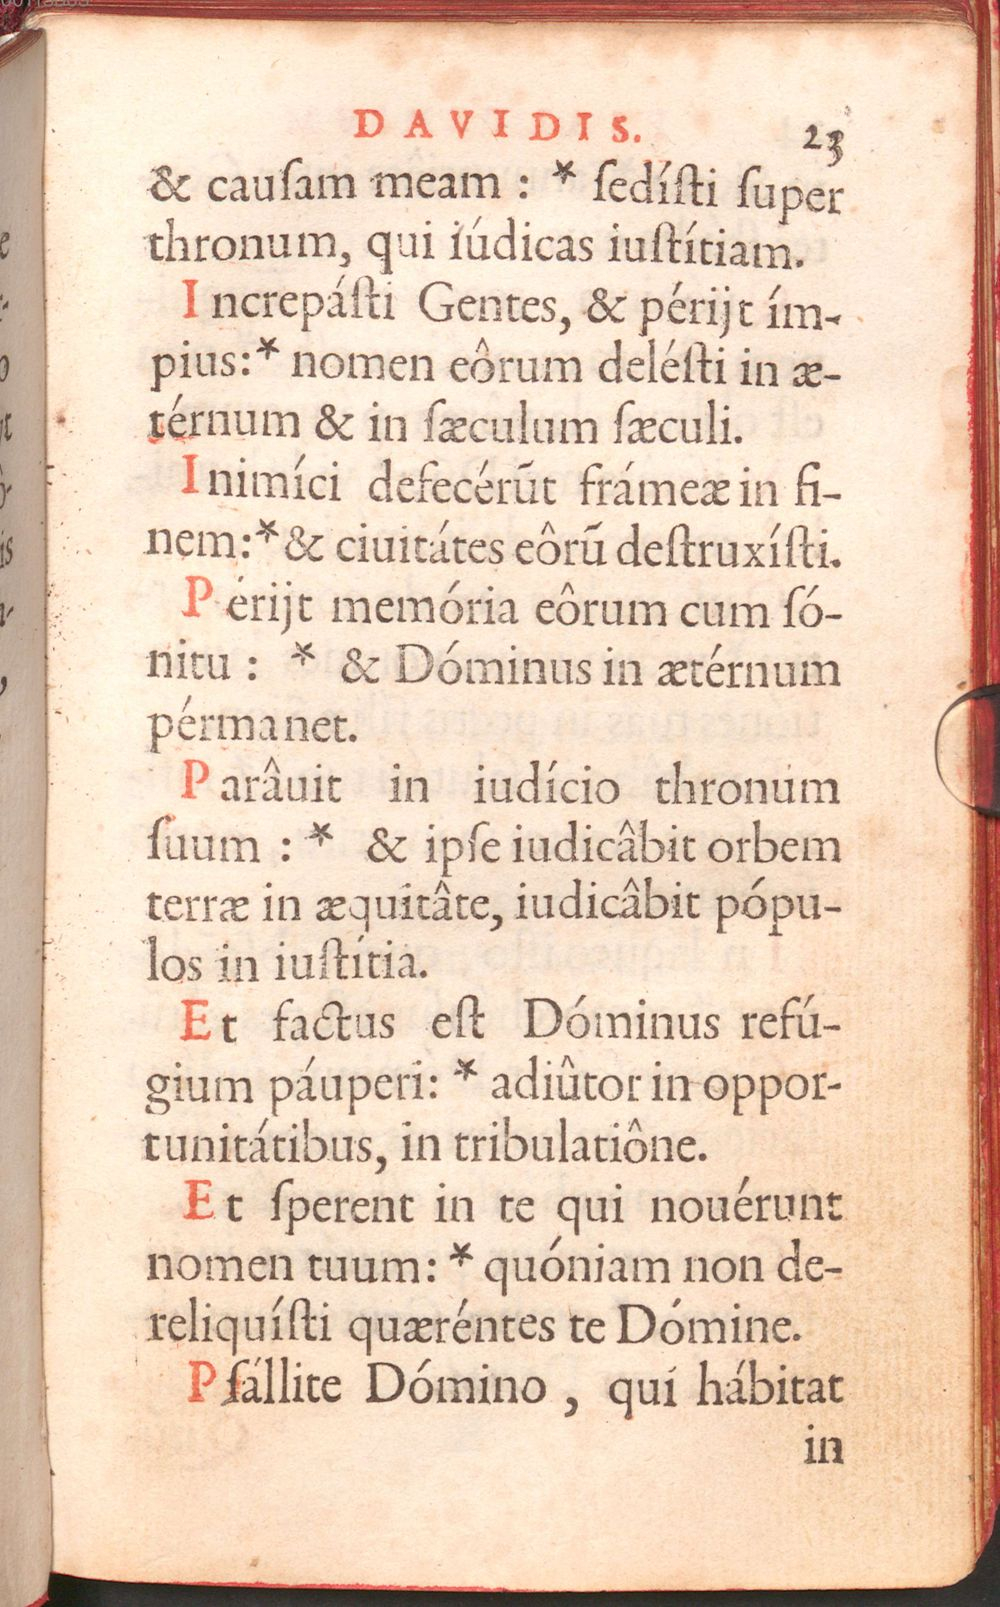 DAVIDIS. 23
& cauſam meam : * ſedíſti ſuper
thronum, qui iúdicas iuſtítiam.
Increpáſti Gentes, & périjt ím-
pius:* nomen eôrum deléſti in æ-
térnum & in ſæculum ſæculi.
Inimíci defecérūt frámeæ in fi-
nem:* & ciuitátes eôrū deſtruxíſti.
Périjt memória eôrum cum ſó-
nitu : * & Dóminus in ætérnum
pérmanet.
Parâuit in iudício thronum
ſuum : * & ipſe iudicâbit orbem
terræ in æquitâte, iudicâbit pópu-
los in iuſtítia.
Et factus eſt Dóminus refú-
gium páuperi: * adiûtor in oppor-
tunitátibus, in tribulatiône.
Et ſperent in te qui nouérunt
nomen tuum: * quóniam non de-
reliquíſti quæréntes te Dómine.
Pſállite Dómino , qui hábitat
in